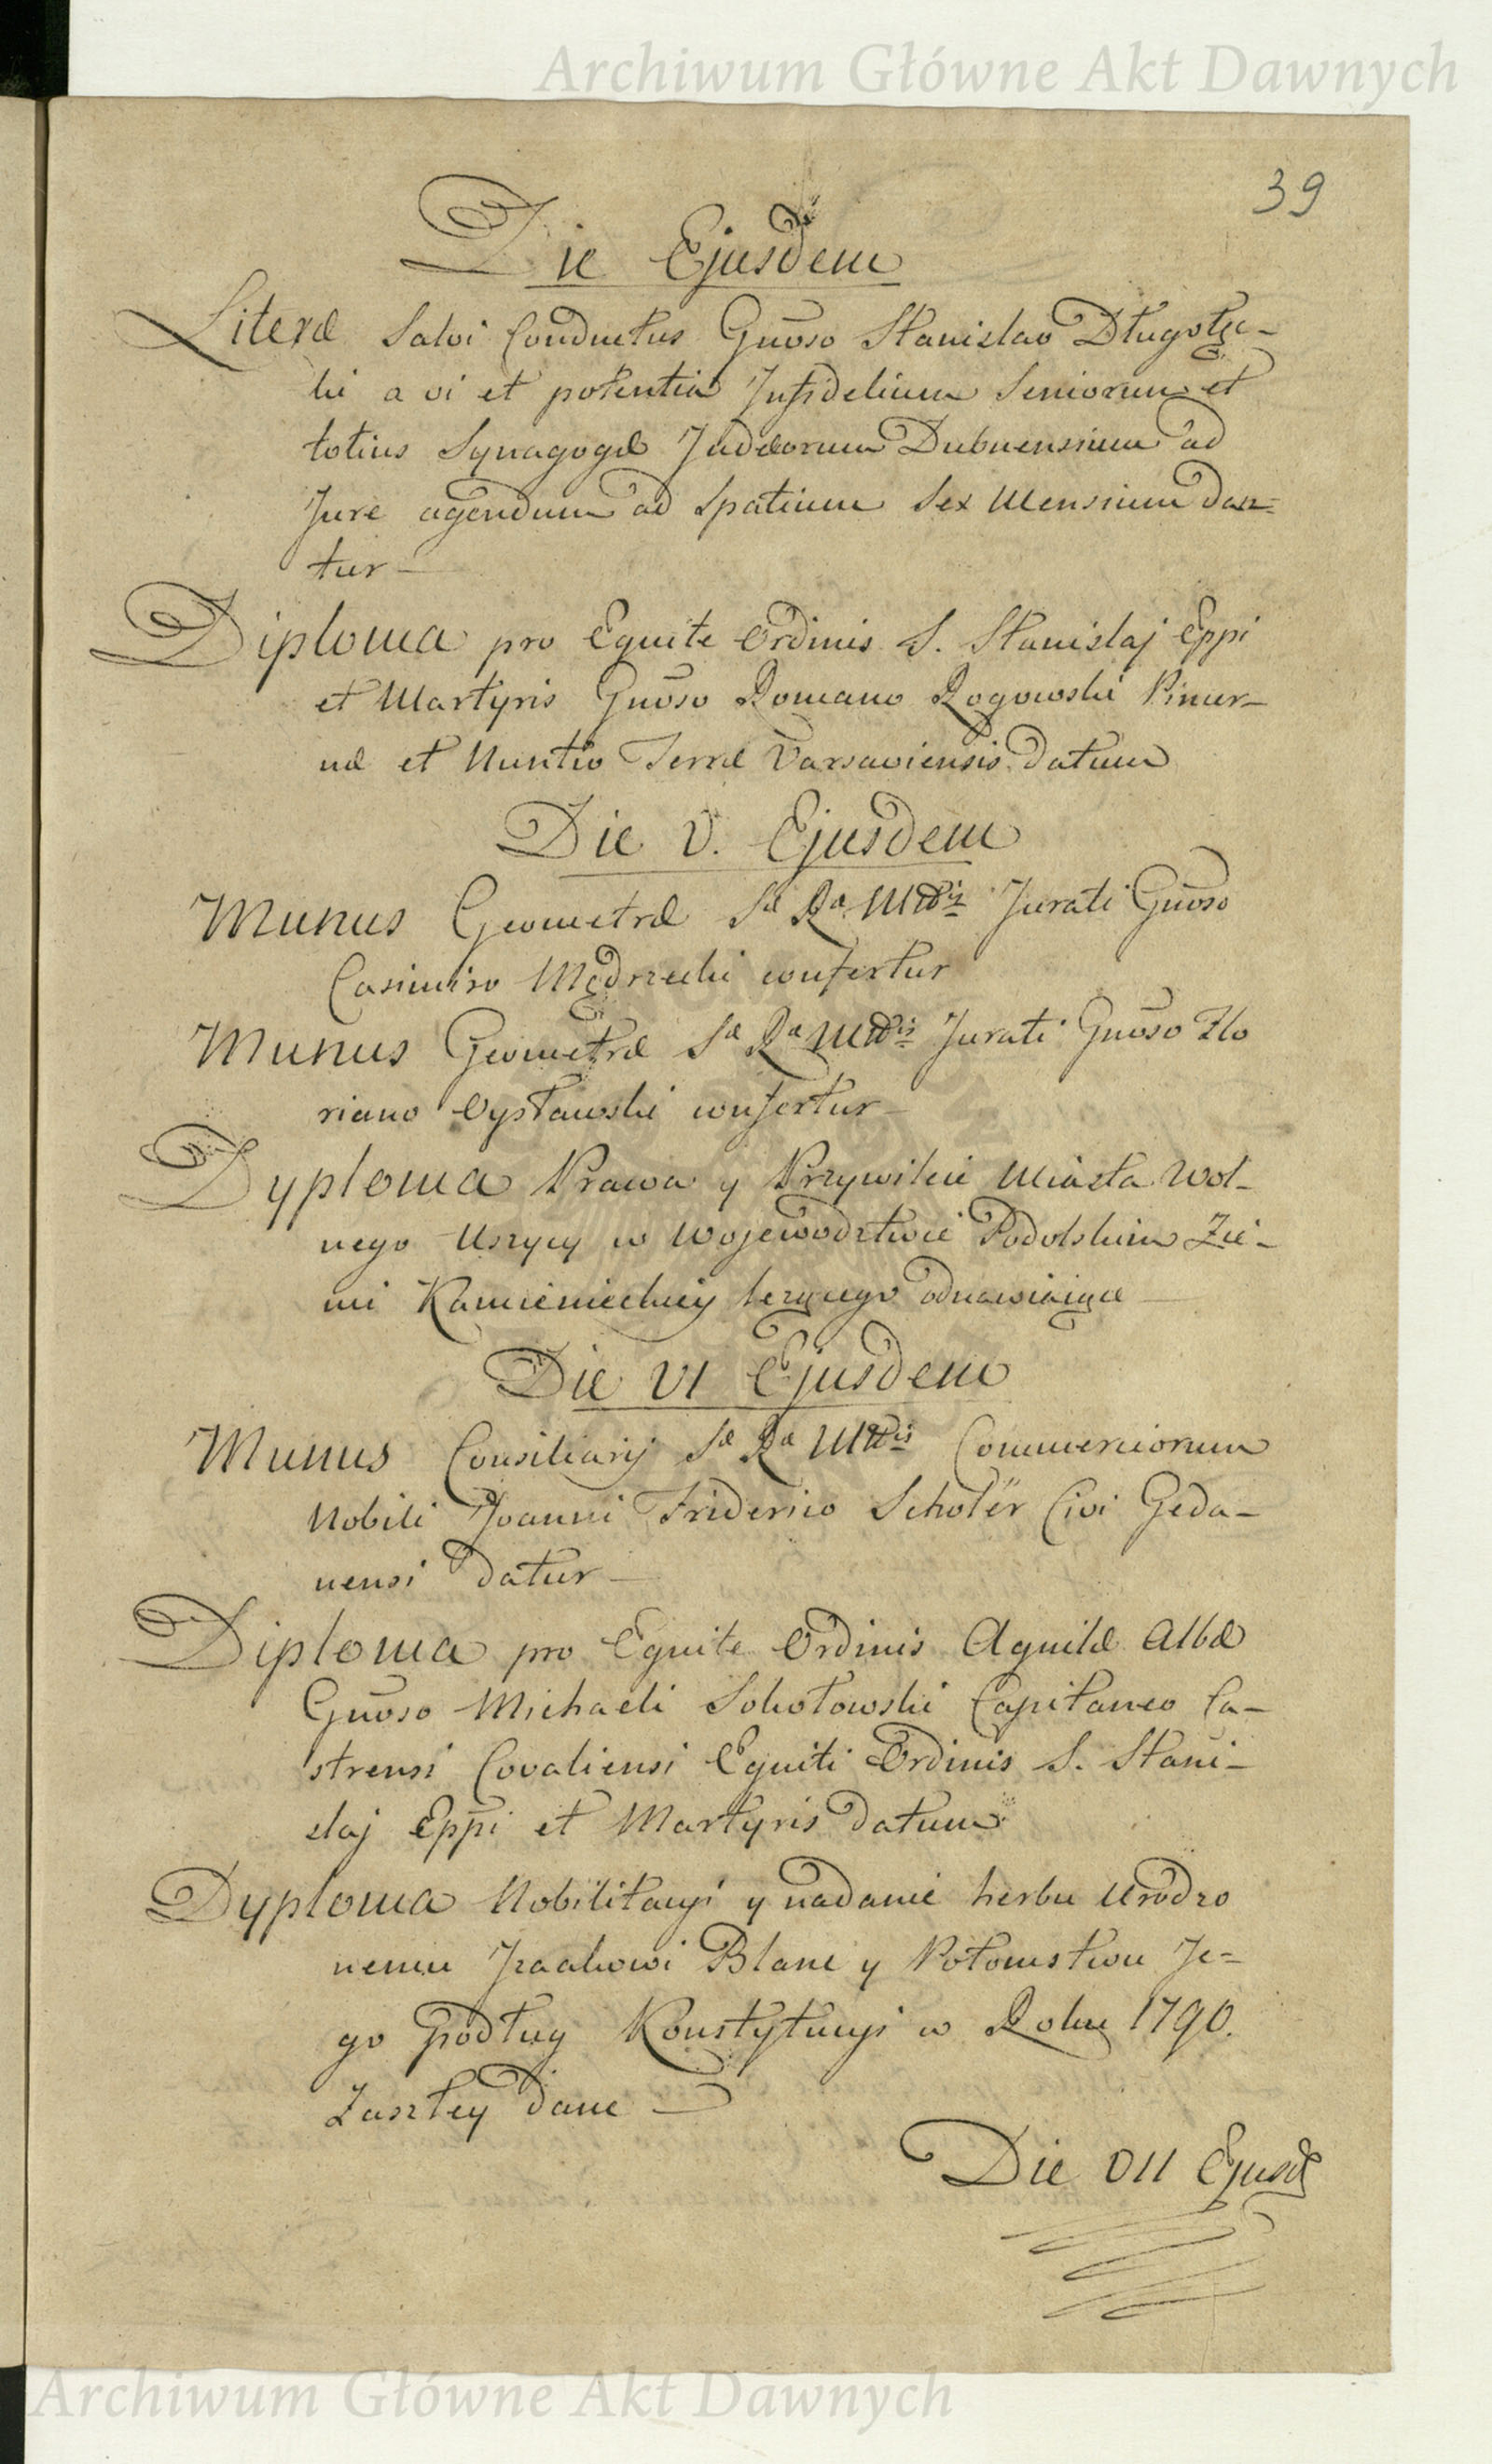 Archiwum Główne Akt Dawnych
39
Die Ejusdem
Literæ Salvi Conductus Gnōso Stanislao Długołęc-
ki a vi et potentia Infidelium Seniorum et
totius Synagogæ Judæorum Dubnensium ad
Jure agendum ad Spatium Sex Mensium dan=
tur
Diploma pro Equite Ordinis S. Stanislaj Eppi
et Martyris Gnōso Romano Rogowski Pincer-
næ et Nuntio Terræ Varsaviensis datum
Die V. Ejusdem
Munus Geometræ Sæ Ræ Mttis Jurati Gnōso
Casimiro Mędrzecki confertur
Munus Geometræ Sæ Ræ Mttis Jurati Gnōso Flo
riano Oystawski confertur
Dyploma Prawa y Przywileie Miasta Wol-
nego Uszycy w Wojewodztwie Podolskim Zie-
mi Kamienieckiey leżącego odnawiaiące
Die VI Ejusdem
Munus Consiliarij Sæ Ræ Mttis Commerciorum
Nobili Joanni Friderico Scholër Civi Geda-
nensi datur
Diploma pro Equite Ordinis Aquilæ Albæ
Gnōso Michaeli Sokołowski Capitaneo Ca-
strensi Covaliensi Equiti Ordinis S. Stani-
slaj Eppi et Martyris datum
Dyploma Nobilitacyi y nadanie herbu Urodzo
nemu Izaakowi Blanc y Potomstwu Je=
go podług Konstytucyi w Roku 1790.
Zaszłey dane
Die VII Ejusd
Archiwum Główne Akt Dawnych